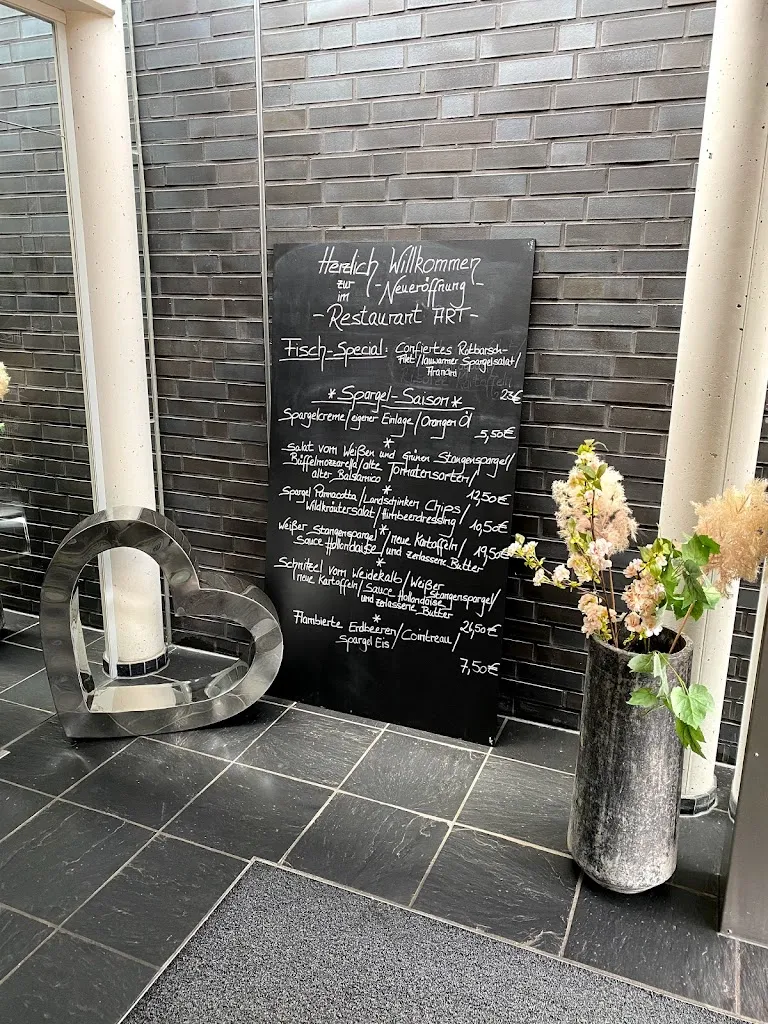 Herzlich Willkommen
zur - Neueröffnung -
im
- Restaurant ART -
Fisch-Special: Confiertes Rotbarsch-
Filet/lauwarmer Spargelsalat/
23€
*Spargel-Saison*
Spargelcreme/eigener Einlage/Orangen Öl
5,50€
*
Salat vom Weißen und Grünen Stangenspargel/
Büffelmozzarella/alte Tomatensorten/
alter Balsamico
12,50€
*
Spargel Pannacotta/Landschinken Chips/
Wildkräutersalat/Himbeerdressing/
10,50€
*
Weißer Stangenspargel/neue Kartoffeln/
Sauce Hollandaise/und zerlassene Butter
19,50€
*
Schnitzel vom Weidekalb/Weißer Stangenspargel/
neue Kartoffeln/Sauce Hollandaise/
und zerlassene Butter
26,50€
*
Flambierte Erdbeeren/Cointreau/
Spargel Eis/
7,50€